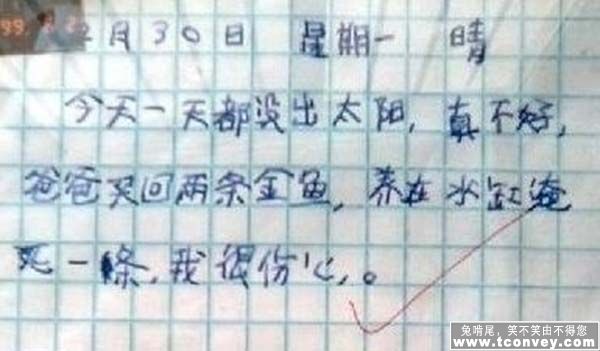 2月30日 星期一 晴
今天一天都没出太阳,真不好,
爸爸买回两条金鱼,养在水缸淹
死一條,我很份心。
兔啃尾，笑不笑由不得您
www.tconvey.com